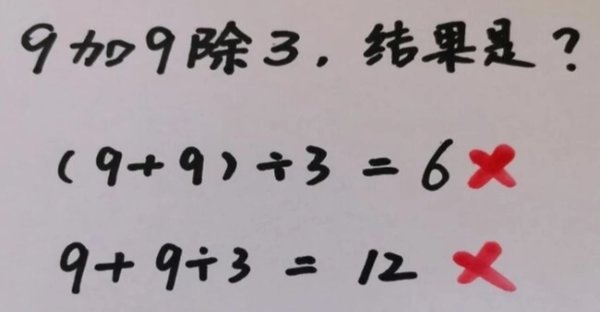 9加9除3，结果是？
(9+9)÷3=6
9+9÷3=12